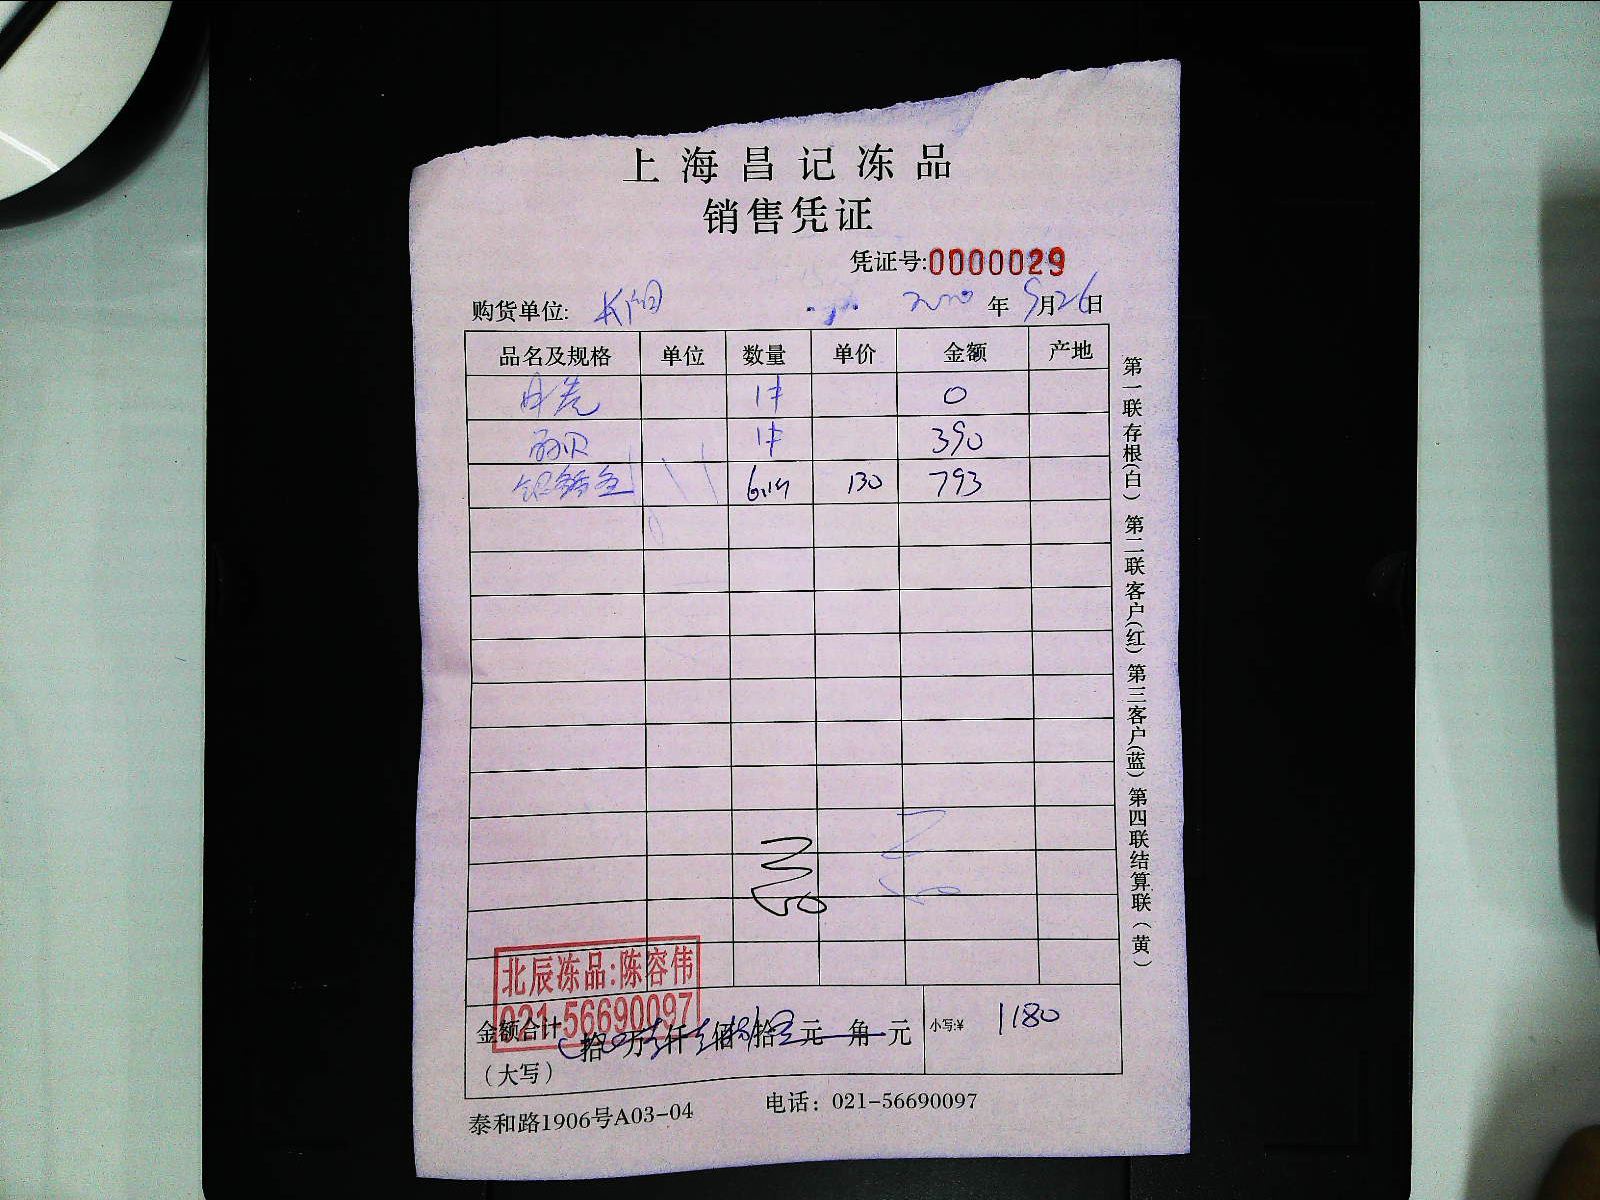 上海昌记冻品
销售凭证
凭证号:0000029
购货单位: 年9月26日
品名及规格 单位 数量 单价 金额 产地
1件 0
1件 390
130 793
北辰冻品:陈容伟
021-56690097
金额合计 拾 万 仟 佰 拾 元 角 元 小写:¥ 1180
(大写)
泰和路1906号A03-04 电话: 021-56690097
第一联存根(白) 第二联客户(红) 第三客户(蓝) 第四联结算联(黄)